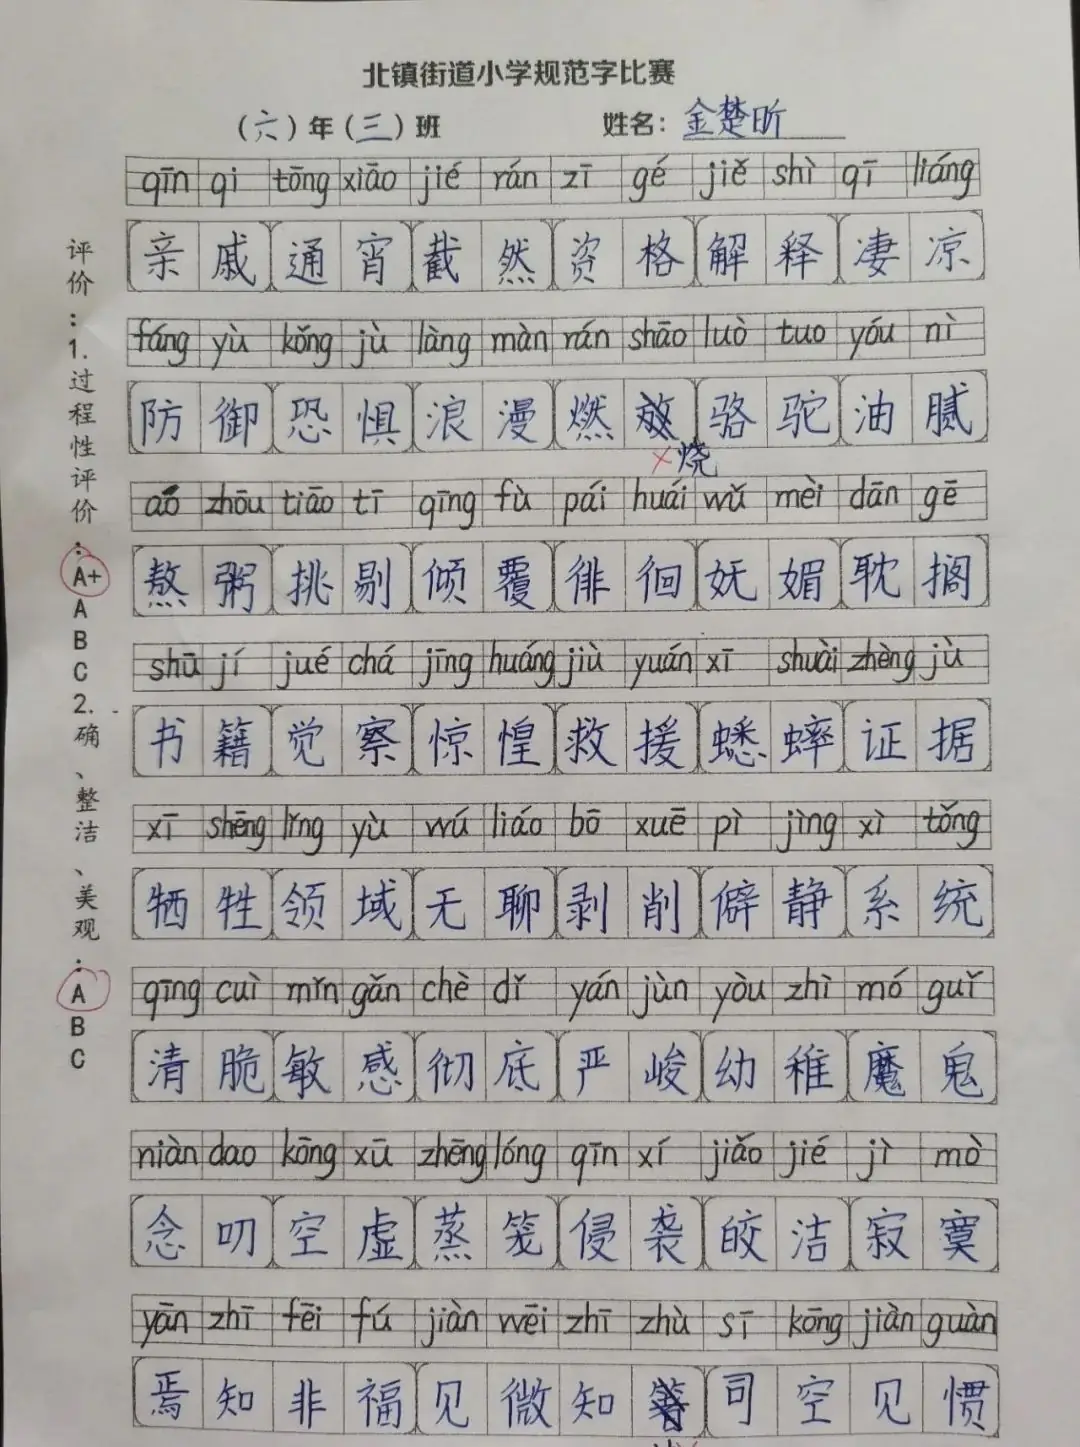 北镇街道小学规范字比赛
（六）年（三）班 姓名：金楚昕
qīn qi tōng xiāo jié rán zī gé jiě shì qī liáng
亲戚通宵截然资格解释凄凉
fáng yù kǒng jù làng màn rán shāo luò tuo yóu nì
防御恐惧浪漫燃放骆驼油腻
×烧
áo zhōu tiāo tī qīng fù pái huái wǔ mèi dān gē
熬粥挑剔倾覆徘徊妩媚耽搁
shū jí jué chá jīng huáng jiù yuán xī shuài zhèng jù
书籍觉察惊惶救援蟋蟀证据
xī shēng lǐng yù wú liáo bō xuē pì jìng xì tǒng
牺牲领域无聊剥削僻静系统
qīng cuì mǐn gǎn chè dǐ yán jùn yòu zhì mó guǐ
清脆敏感彻底严峻幼稚魔鬼
niàn dao kōng xū zhēng lóng qīn xí jiǎo jié jì mò
念叨空虚蒸笼侵袭皎洁寂寞
yān zhī fēi fú jiàn wēi zhī zhù sī kōng jiàn guàn
焉知非福见微知司空见惯
评价：1.过程性评价：A+ A B C 2.确、整洁、美观：A B C